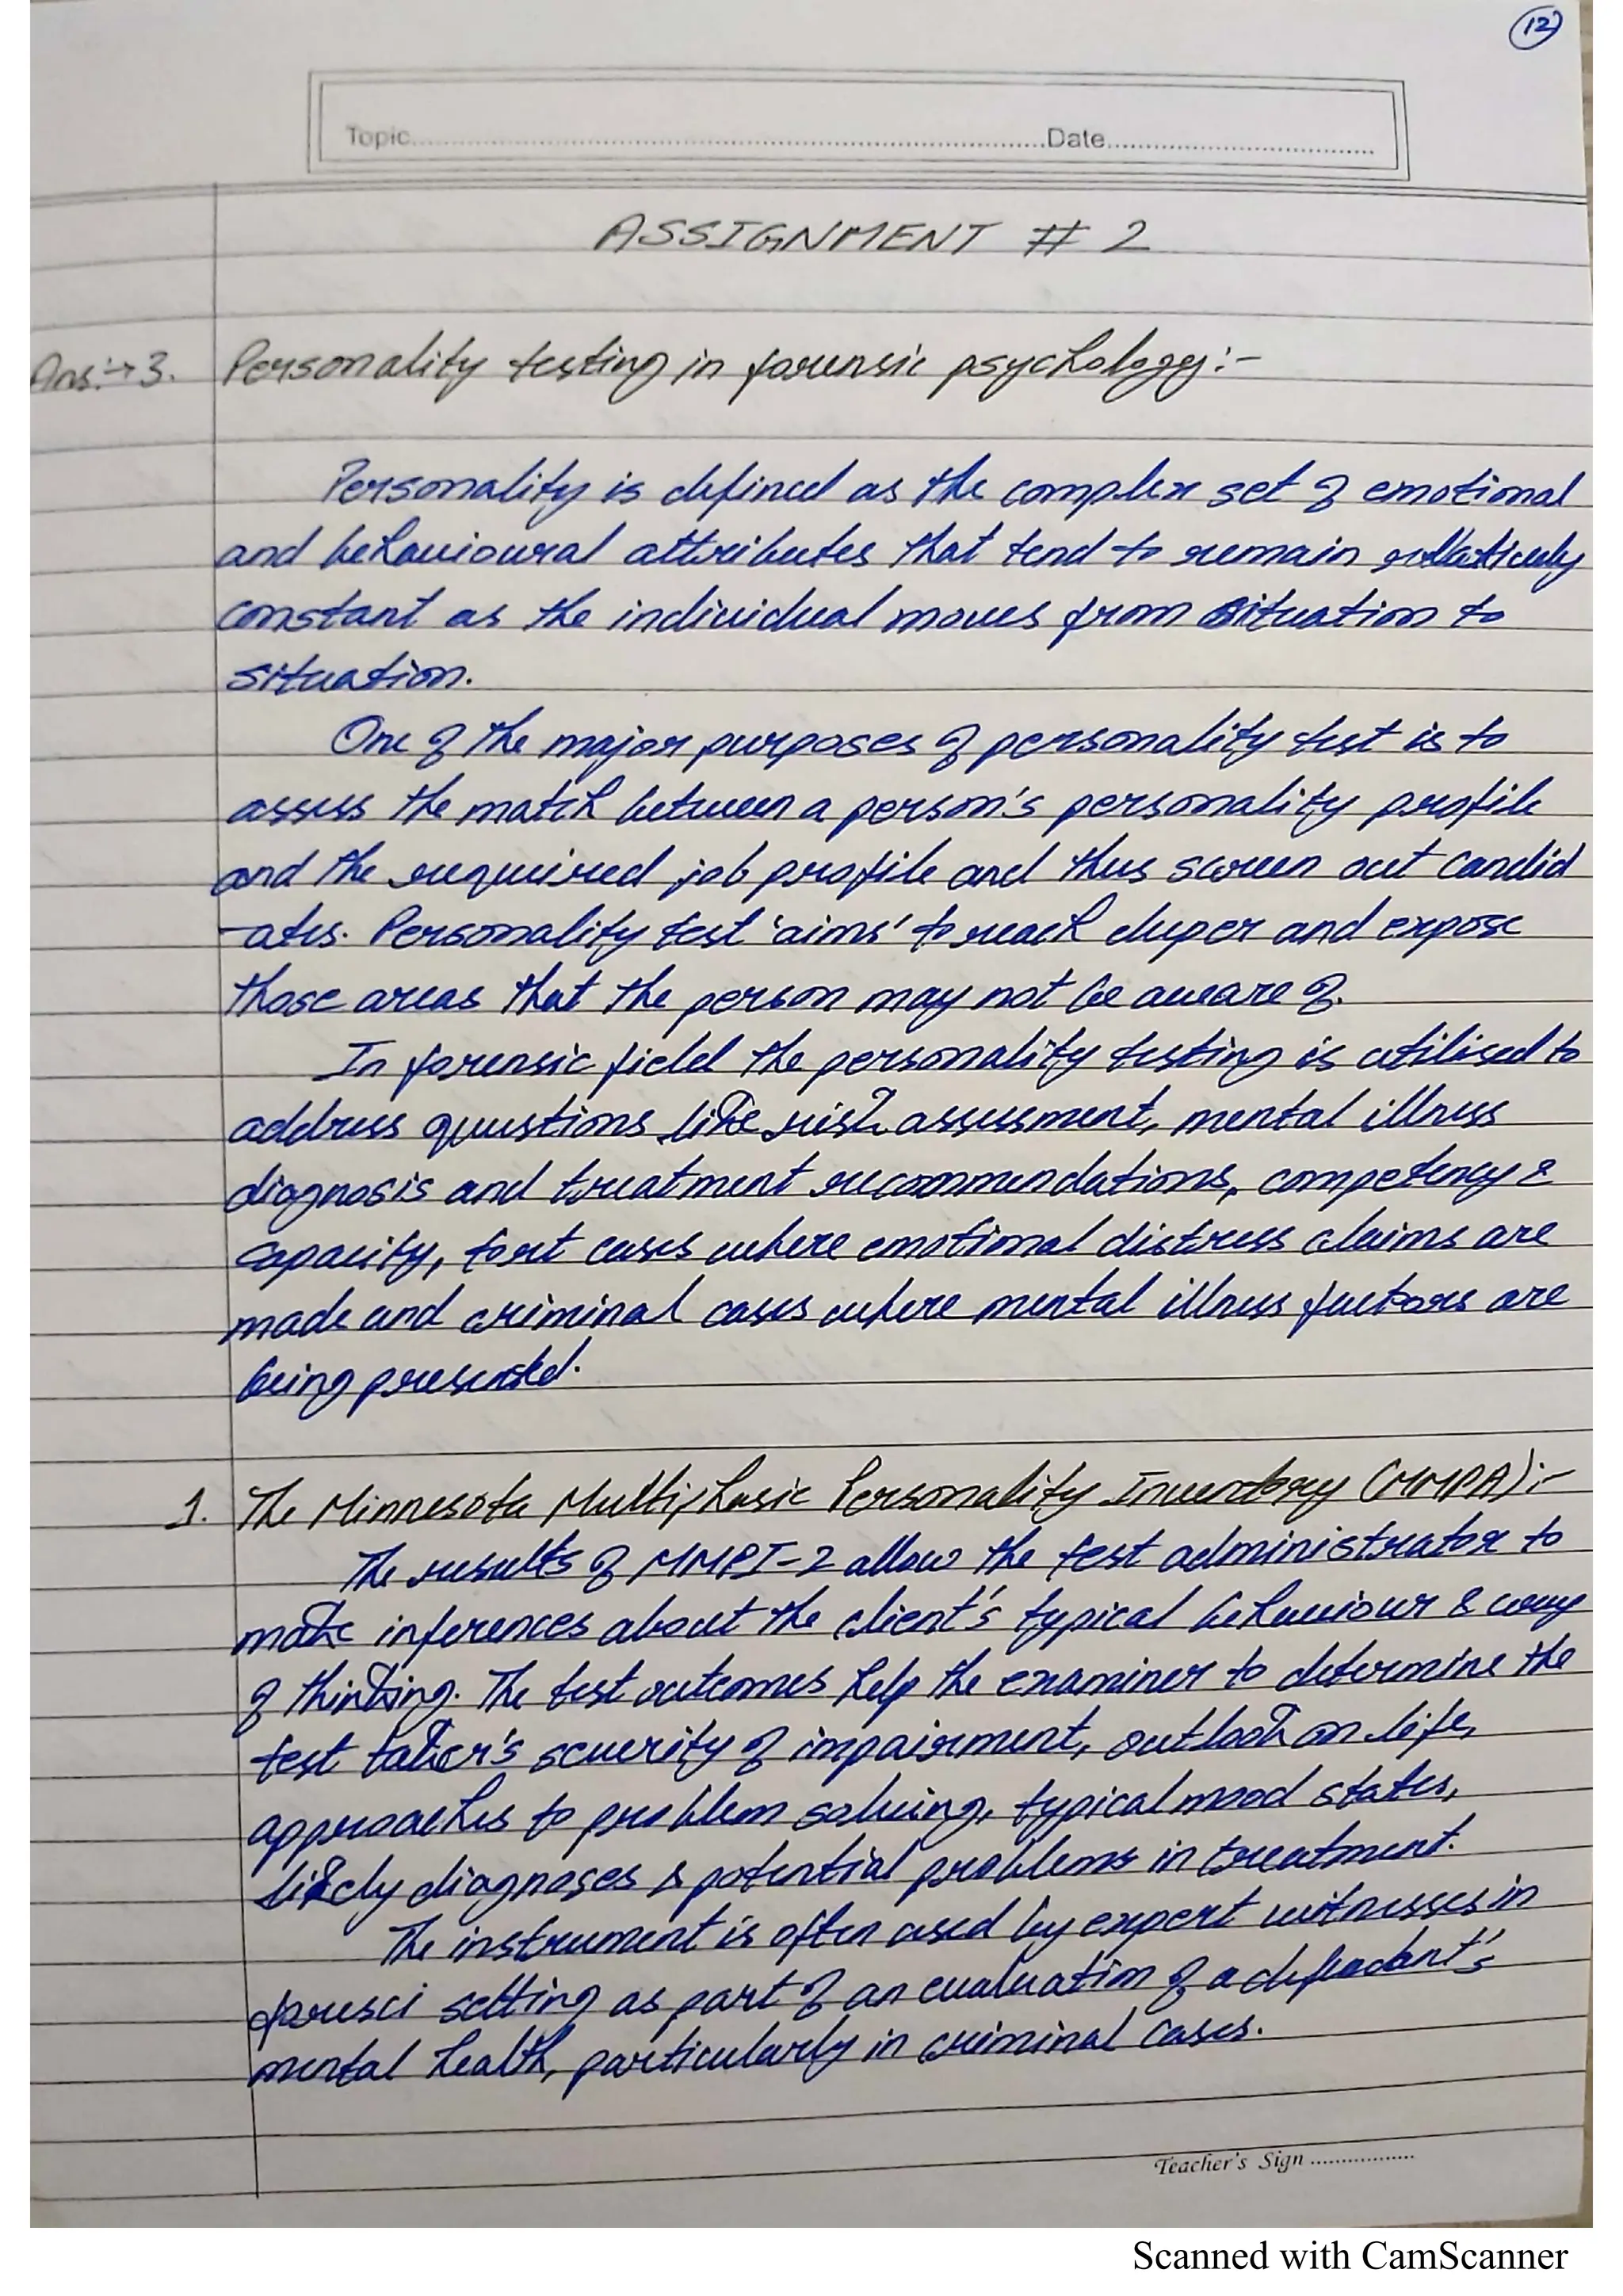 12
Topic..........Date..........
ASSIGNMENT # 2
Ans:→3. Personality testing in forensic psychology:-
Personality is defined as the complex set of emotional
and behavioural attributes that tend to remain relatively
constant as the individual moves from situation to
situation.
One of the major purposes of personality test is to
assess the match between a person's personality profile
and the required job profile and thus screen out candid
-ates. Personality test 'aims' to reach deeper and expose
those areas that the person may not be aware of.
In forensic field the personality testing is utilised to
address questions like risk assessment, mental illness
diagnosis and treatment recommendations, competency &
capacity, tort cases where emotional distress claims are
made and criminal cases where mental illness factors are
being presented.
1. The Minnesota Multiphasic Personality Inventory (MMPA):-
The results of MMPI-2 allow the test administrator to
make inferences about the client's typical behaviour & way
of thinking. The test outcomes help the examiner to determine the
test taker's severity of impairment, outlook on life,
approaches to problem solving, typical mood states,
likely diagnoses & potential problems in treatment.
The instrument is often used by expert witnesses in
foresci setting as part of an evaluation of a defendant's
mental health, particularly in criminal cases.
Teacher's Sign ..........
Scanned with CamScanner